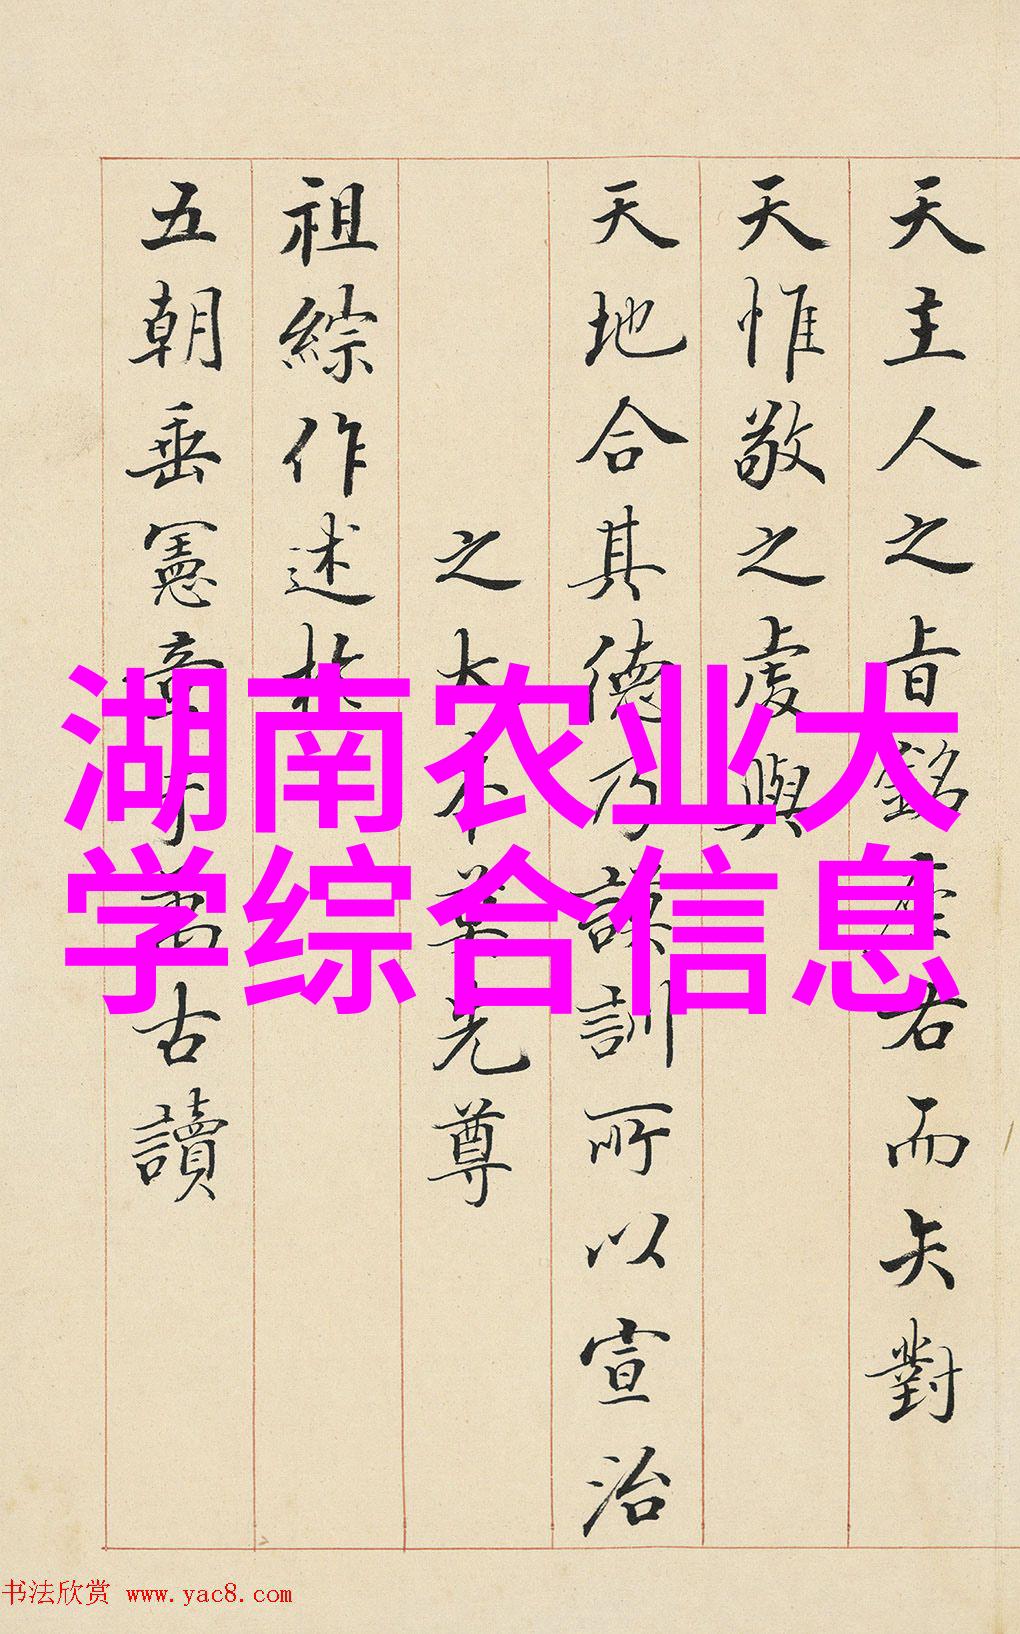 天主人之旨銘座右而矢對
天惟敬之虔與
天地合其德乃謨訓所以宣治
之大本先尊
祖綜作述於
五朝垂憲章于萬古讀
湖南农业大
学综合信息
书法欣赏 www.yac8.com